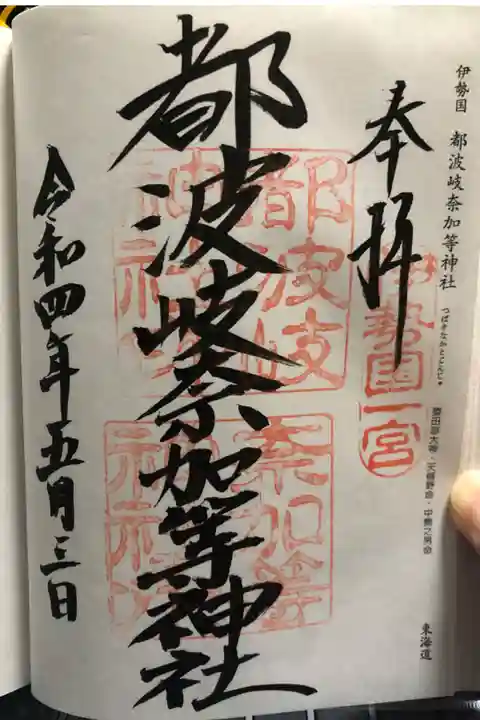 伊勢国 都波岐奈加等神社
つばきなかとじんじゃ
猿田彦大神・天椹野命・中筒之男命
東海道
奉拝
伊勢国一宮
都波岐奈加等神社
都波岐
奈加等
令和四年五月三日